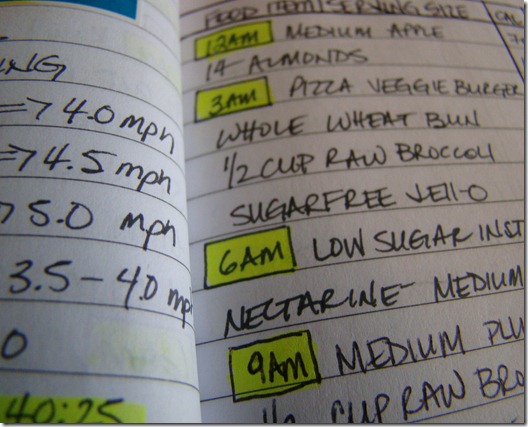 NG
=> 4.0 mph
=> 4.5 mph
> 5.0 mph
3.5 - 4.0 mph
0
40:25
FOOD ITEM/SERVING SIZE CAL
12AM MEDIUM APPLE
14 ALMONDS
3AM PIZZA VEGGIE BURGER
WHOLE WHEAT BUN
1/2 CUP RAW BROCCOLI
SUGARFREE JELL-O
6AM LOW SUGAR INST
NECTARINE - MEDIUM
9AM MEDIUM PLU
1/2 CUP RAW BRO